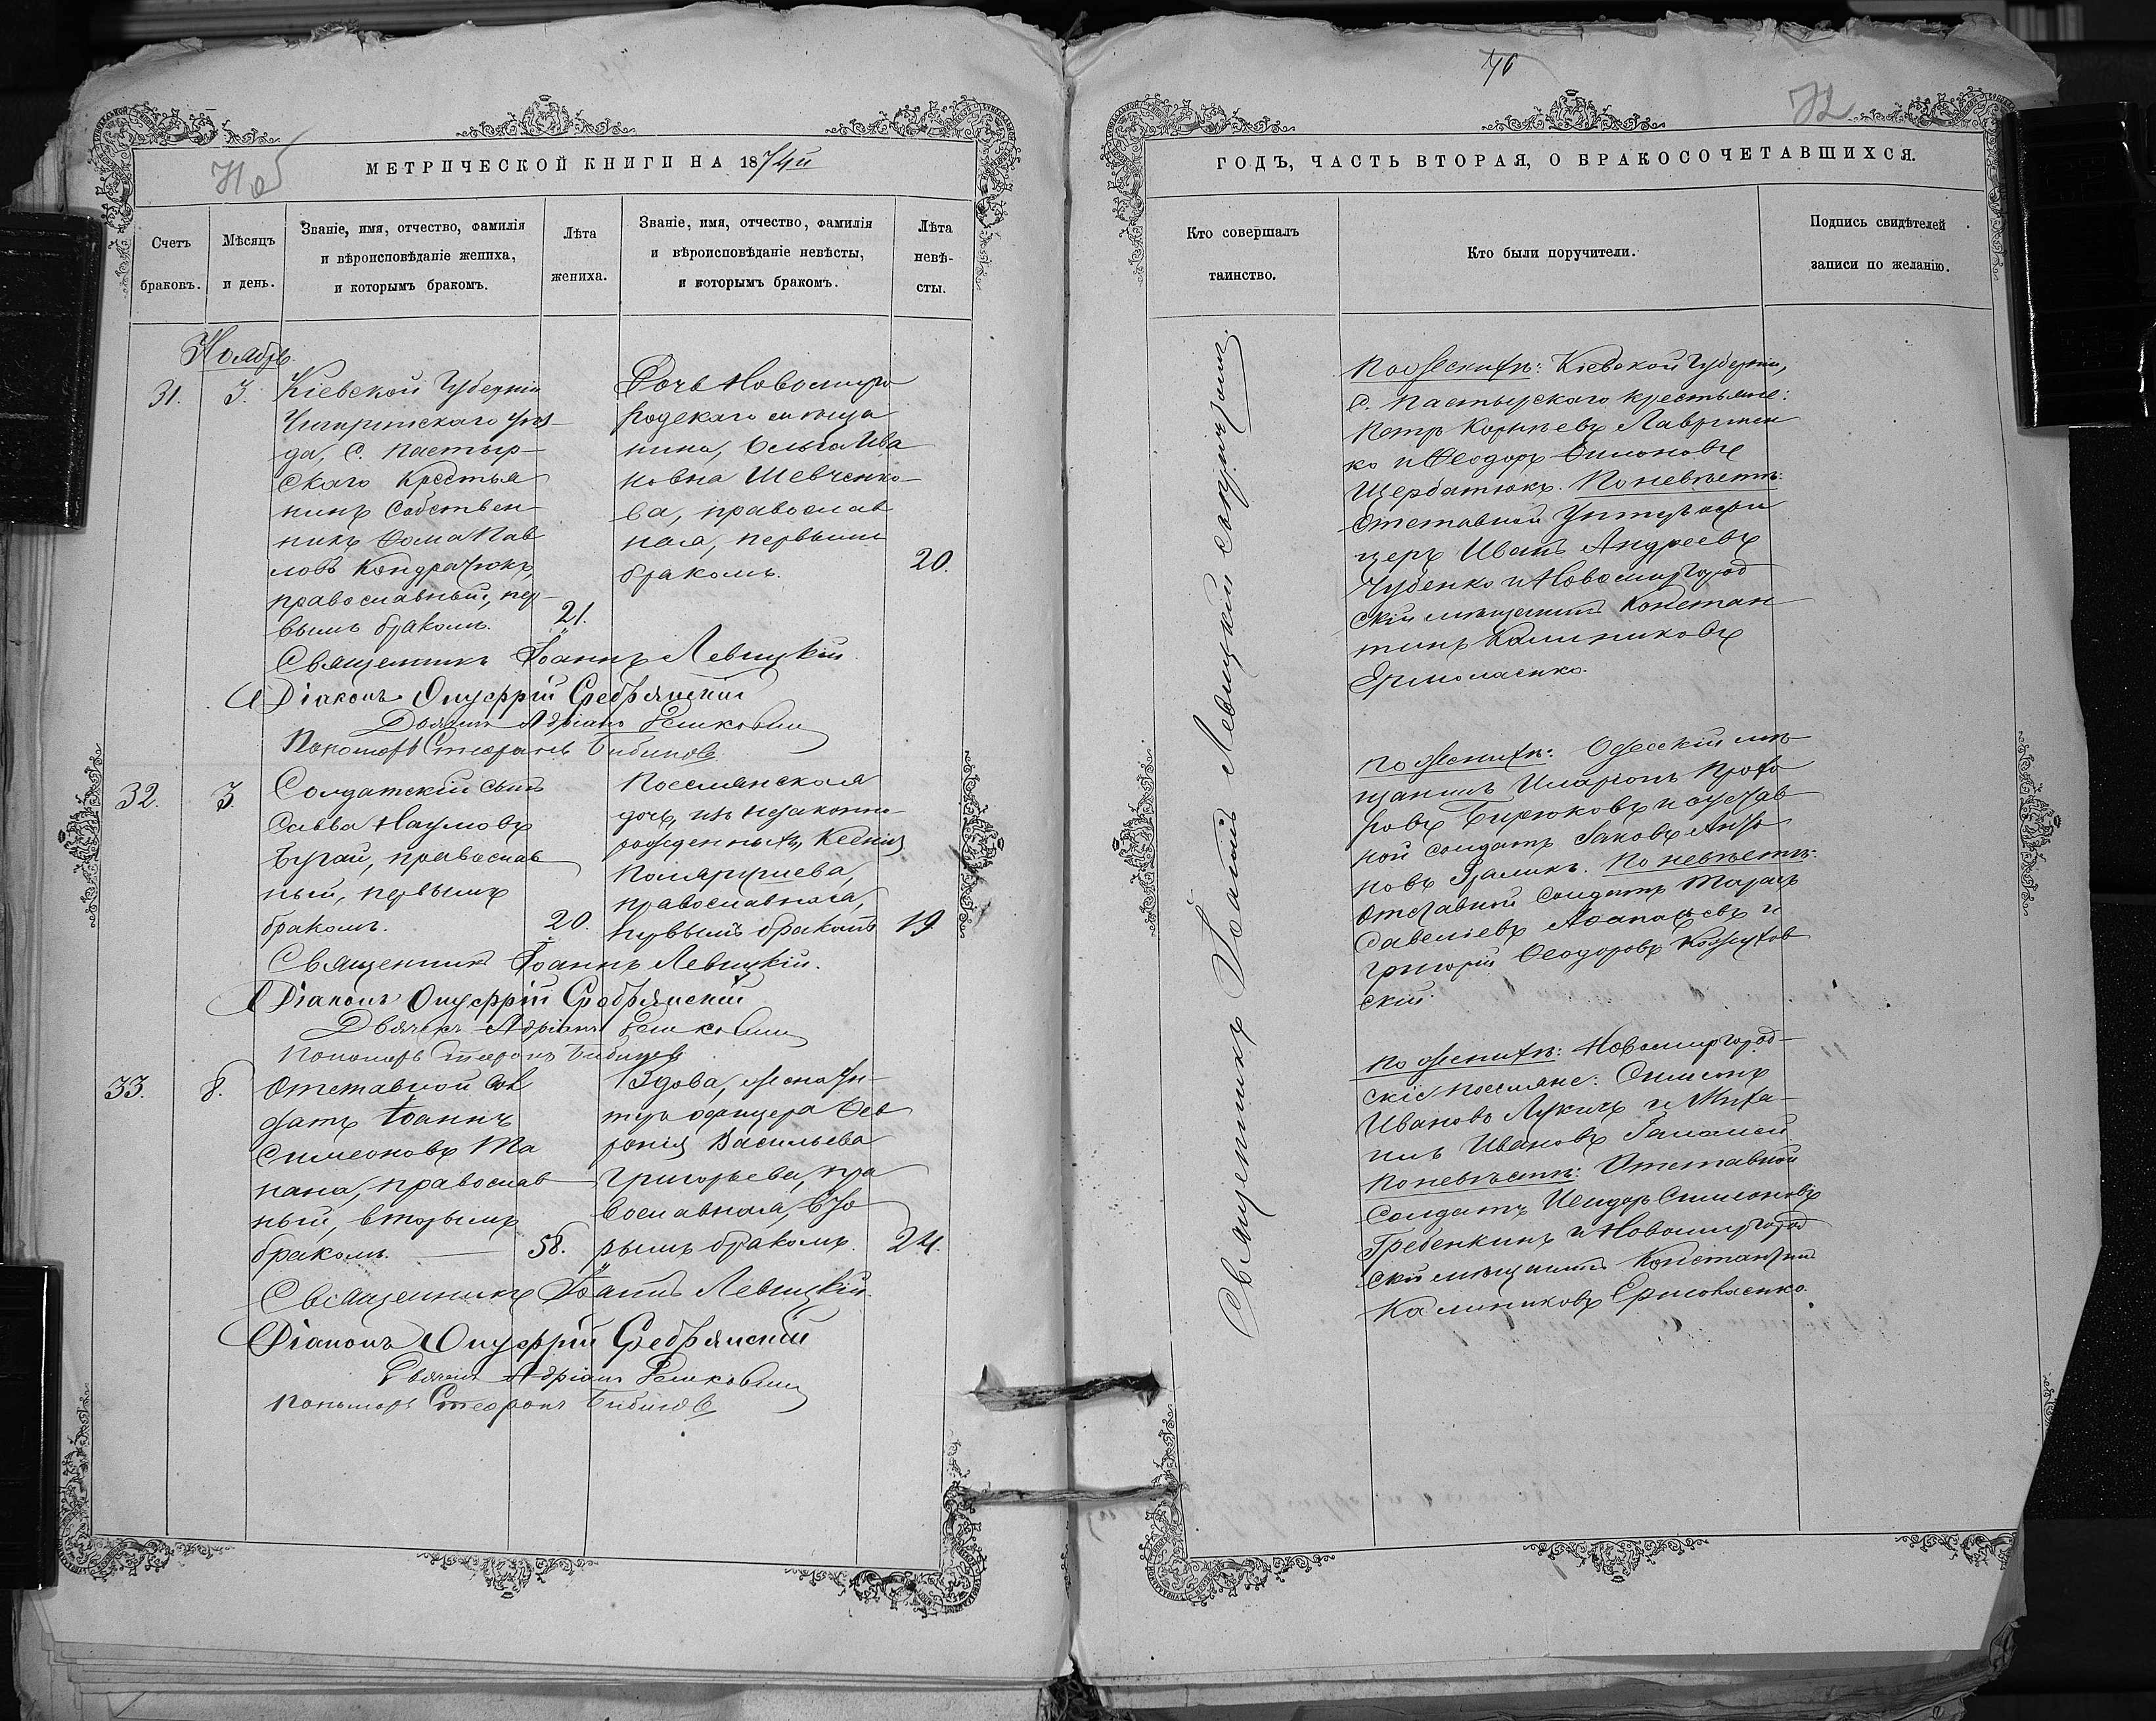 МЕТРИЧЕСКОЙ КНИГИ НА 1874й
Счетъ браковъ.
Мѣсяцъ и день.
Званіе, имя, отчество, фамилія
и вѣроисповѣданіе жениха,
и которымъ бракомъ.
Лѣта жениха.
Званіе, имя, отчество, фамилія
и вѣроисповѣданіе невѣсты,
и которымъ бракомъ.
Лѣта невѣ-
сты.
Ноябрь.
31.
3.
Кіевской Губерніи
Чигиринскаго Уѣз-
да, С. Пастыр-
скаго Крестья
нинъ Собствен-
никъ Ѳома Пав
ловъ Кондратюкъ,
православный, пер-
вымъ бракомъ.
21.
Дочь Новомирго
родскаго мѣща
нина, Ольга Ива
новна Шевченко-
ва, православ
ная, первымъ
бракомъ.
20.
Священникъ Іоаннъ Левицкій
Діаконъ Онуфрій Сребрянскій
Дьячекъ Адріанъ
Пономарь Стефанъ
32.
3.
Солдатскій сынъ
Савва Наумовъ
Бугай, православ
ный, первымъ
бракомъ.
20.
Поселянская
дочь, изъ незаконно-
рожденныхъ, Ксенія
православная,
первымъ бракомъ
19.
Священникъ Іоаннъ Левицкій.
Діаконъ Онуфрій Сребрянскій
Дьячекъ Адріанъ
Пономарь Стефанъ
33.
8.
Отставной Сол
датъ Іоаннъ
Симеоновъ Ма
пана, православ
ный, вторымъ
бракомъ.
58.
Вдова, жена Ун-
теръ офицера Фев
ронія Васильева
Григорьева, пра
вославная, вто
рымъ бракомъ.
24.
Священникъ Іоаннъ Левицкій.
Діаконъ Онуфрій Сребрянскій
Дьячекъ Адріанъ
Пономарь Стефанъ
70
72
ГОДЪ, ЧАСТЬ ВТОРАЯ, О БРАКОСОЧЕТАВШИХСЯ.
Кто совершалъ
таинство.
Кто были поручители.
Подпись свидѣтелей
записи по желанію.
Священникъ Іоаннъ Левицкій
По женихѣ: Кіевской Губерніи,
С. Пастырскаго крестьяне:
Петръ Корнѣевъ Лавринен
ко и Ѳеодоръ Симоновъ
Щербатюкъ. По невѣстѣ:
Отставной Унтеръ офи
церъ Иванъ Андреевъ
Чубенко и Новомиргород
скій мѣщанинъ Констан
тинъ Калиниковъ
Ермолаенко.
По женихѣ: Одесскій мѣ
щанинъ Иларіонъ Прохо
ровъ Бирюковъ и отстав
ной солдатъ Іаковъ Анто
новъ По невѣстѣ:
Отставной солдатъ Тарасъ
Савеліевъ Аѳанасьевъ и
Григорій Ѳеодоровъ Кожухов
скій.
По женихѣ: Новомиргород-
скіе поселяне: Симеонъ
Ивановъ Лукичъ и Миха-
илъ Ивановъ
По невѣстѣ: Отставной
Солдатъ Исидоръ Симеоновъ
Гребенкинъ и Новомиргород
скій мѣщанинъ Константинъ
Калиниковъ Ермолаенко.